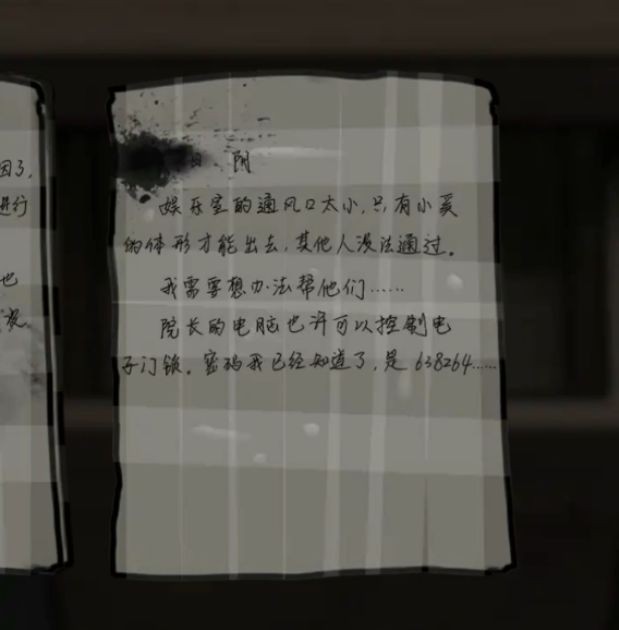 因了,
进行
也
夜
日 阴
娱乐室的通风口太小,只有小奚
的体形才能出去,其他人没法通过。
我需要想办法帮他们……
院长的电脑也许可以控制电
子门锁。密码我已经知道了,是638264……